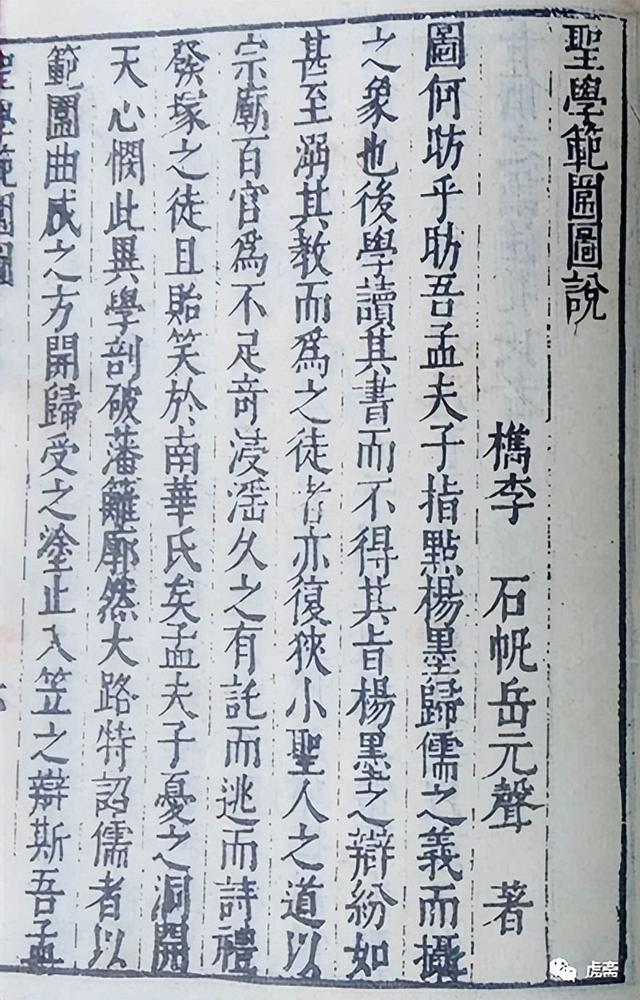 聖學範圍圖說
檇李 石帆岳元聲 著
圖何昉乎昉吾孟夫子指點楊墨歸儒之義而攝
之象也後學讀其書而不得其旨楊墨之辯紛如
甚至溺其教而爲之徒者亦復狹小聖人之道以
宗廟百官爲不足奇浸滛久之有託而逃而詩禮
發塚之徒且貽笑於南華氏矣孟夫子憂之洞開
天心憫此異學剖破藩籬廓然大路特詔儒者以
範圍曲成之方開歸受之塗止入笠之辯斯吾孟
聖學範圍圖
虎斋